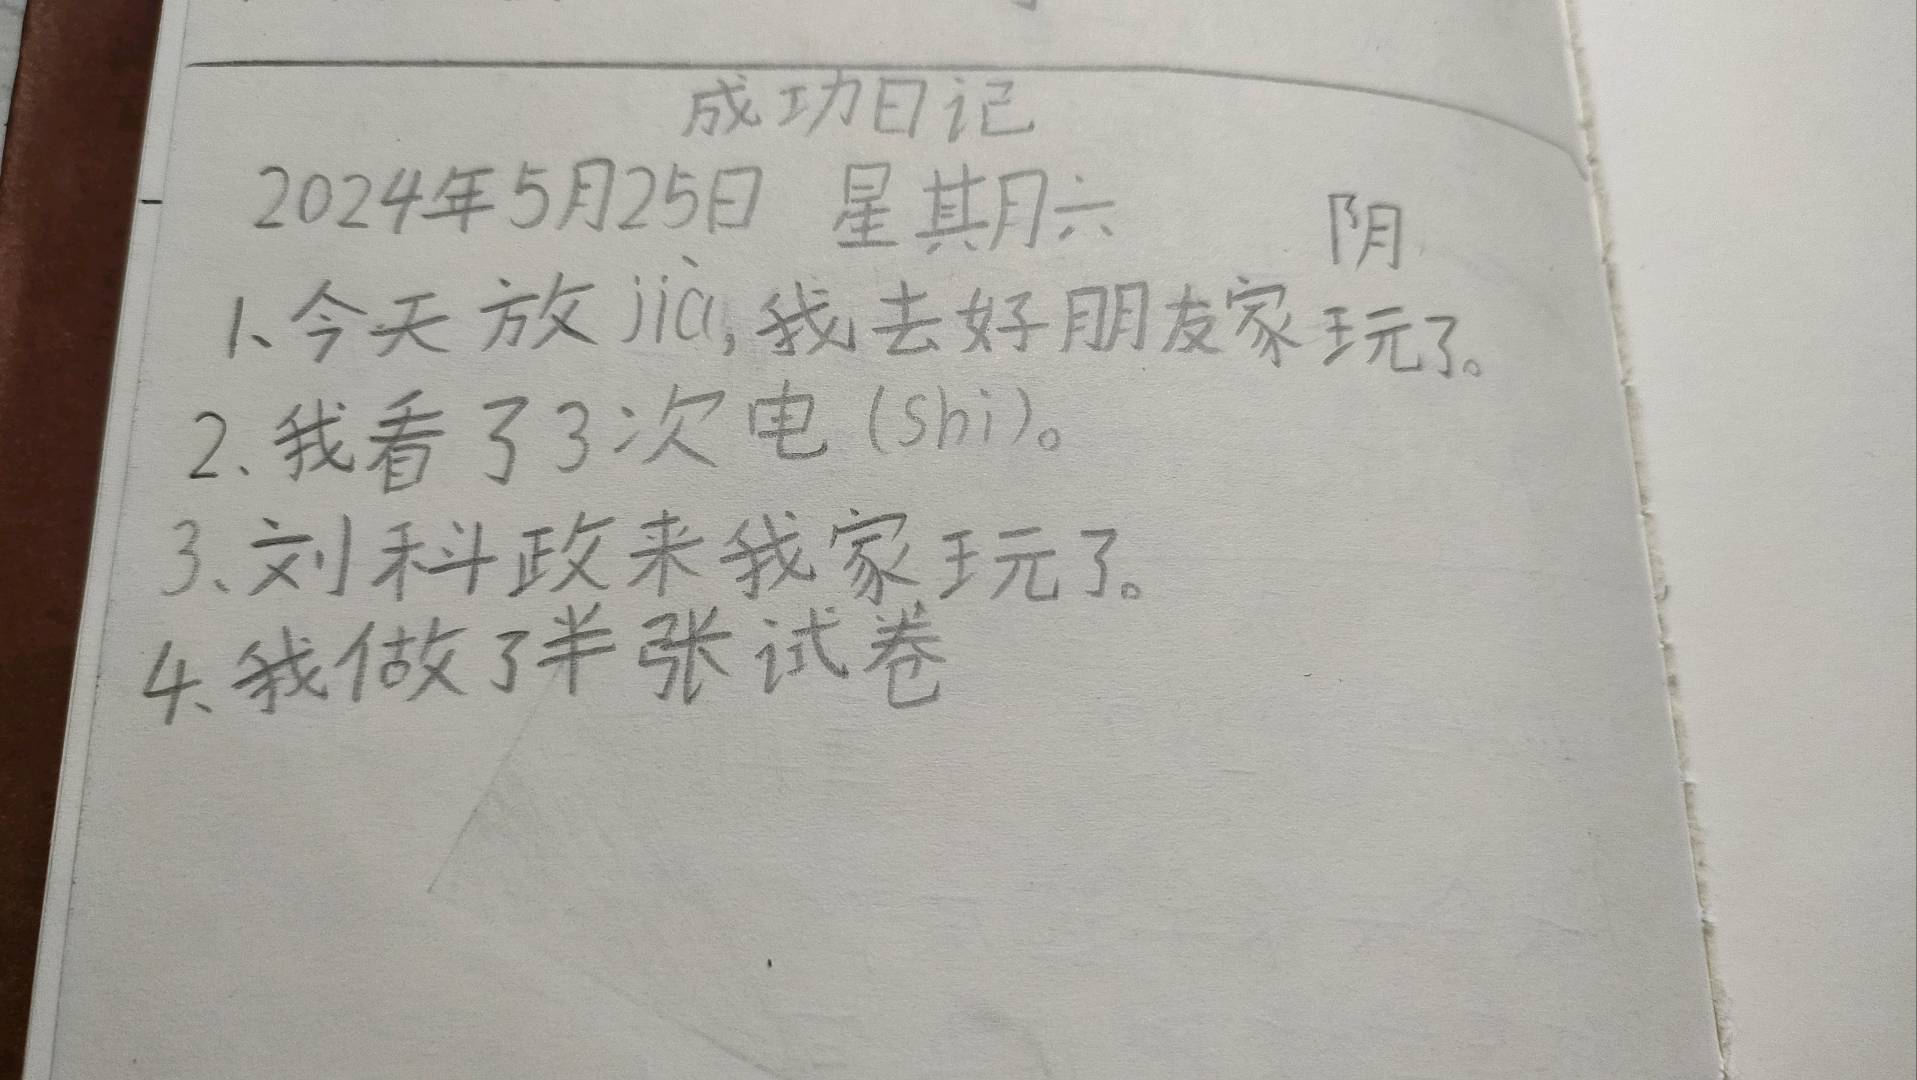 成功日记
2024年5月25日 星期六 阴
1、今天放jià,我去好朋友家玩了。
2、我看了3次电(shi)。
3、刘科政来我家玩了。
4、我做了半张试卷